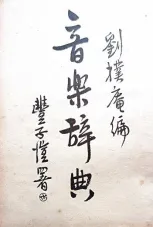 劉樸庵編
音樂辞典
豐子愷署